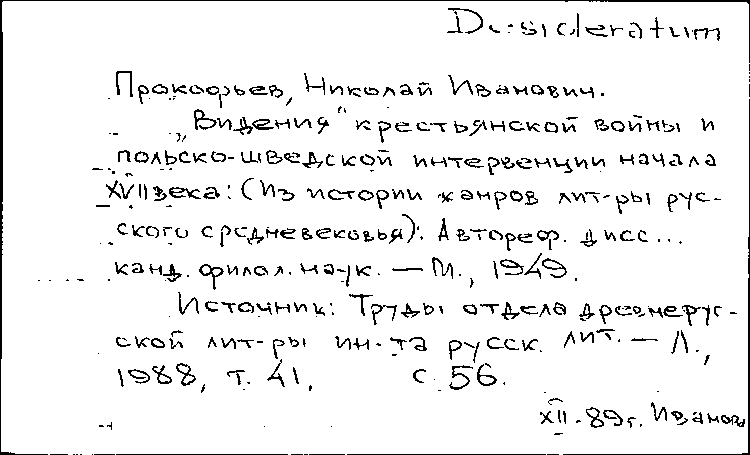 Desideratum
Прокофьев, Николай Иванович.
„Видения“ крестьянской войны и
польско-шведской интервенции начала
XVII века: (Из истории жанров лит-ры рус-
ского средневековья). Автореф. дисс...
канд. филол. наук. — М., 1949.
Источник: Труды отдела древнерус-
ской лит-ры ин-та русск. лит. — Л.,
1988, т. 41, с. 56.
XII-89г. Иванова